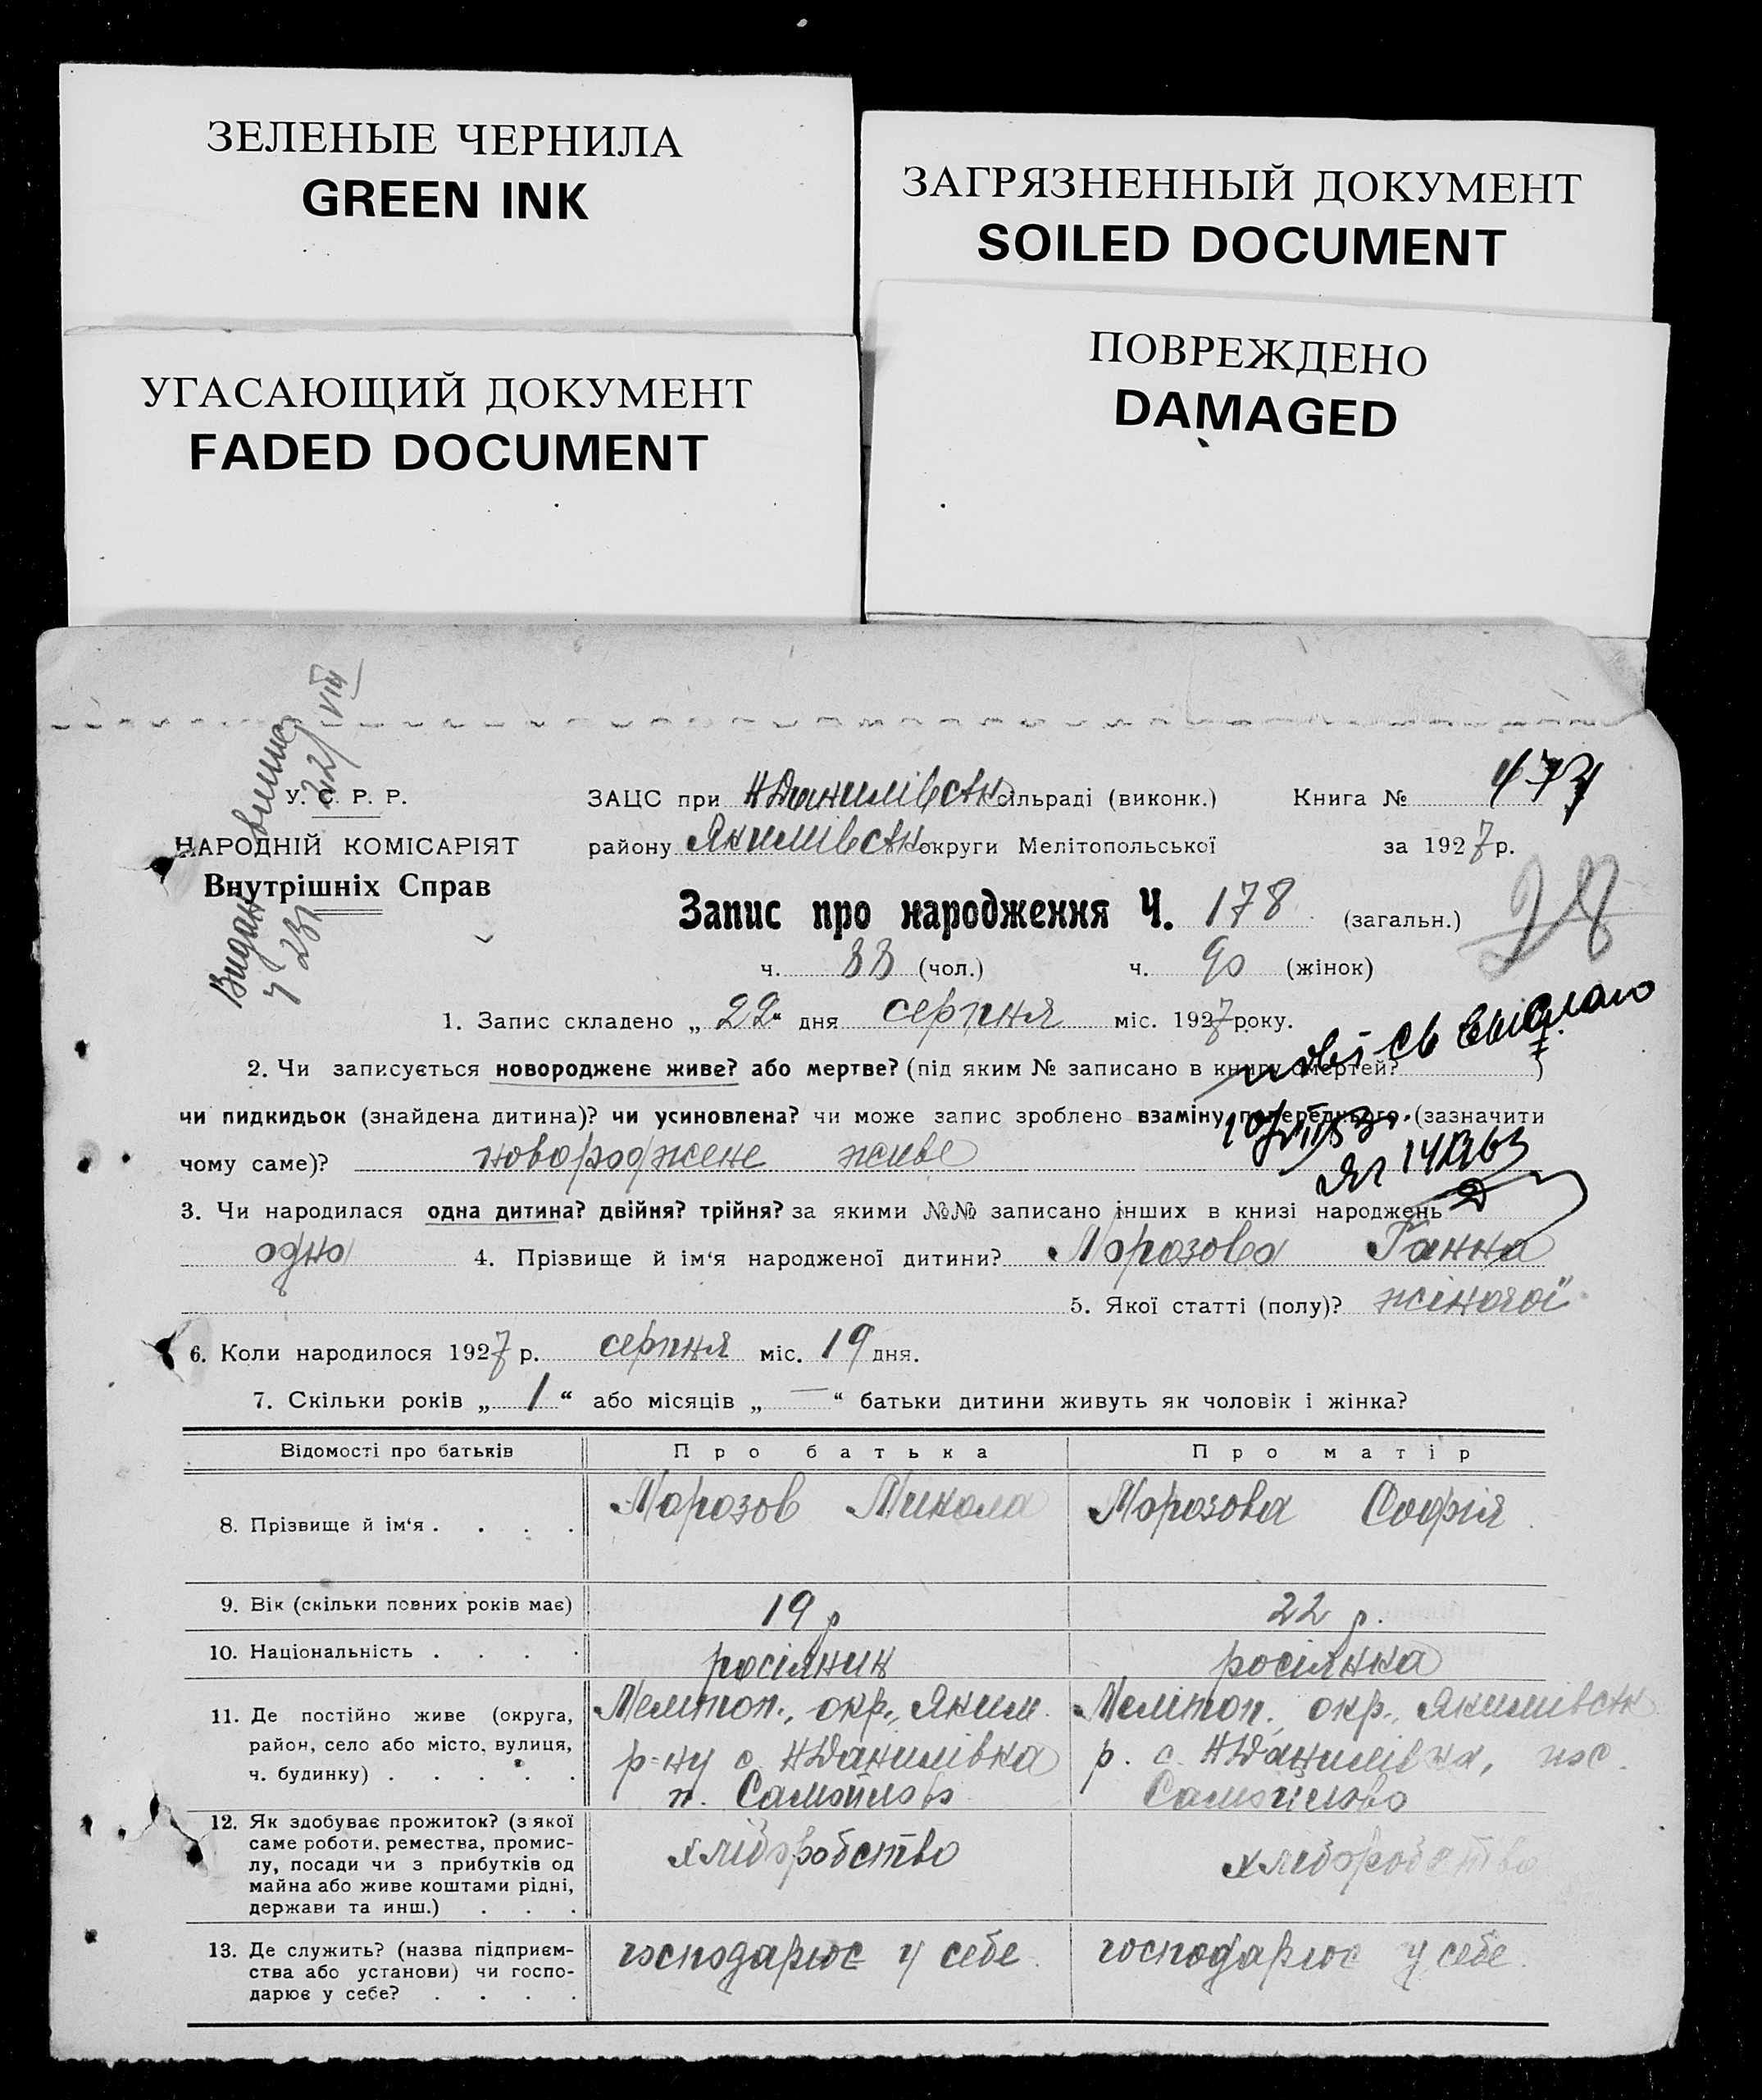 ЗЕЛЕНЫЕ ЧЕРНИЛА
GREEN INK
ЗАГРЯЗНЕННЫЙ ДОКУМЕНТ
SOILED DOCUMENT
УГАСАЮЩИЙ ДОКУМЕНТ
FADED DOCUMENT
ПОВРЕЖДЕНО
DAMAGED
22/VIII
У. С. Р. Р.
НАРОДНІЙ КОМІСАРІЯТ
Внутрішніх Справ
ЗАЦС при НДанилівськ сільраді (виконк.) Книга №
району Якимівськ округи Мелітопольської за 1927 р.
Запис про народження Ч. 178 (загальн.) 28
ч. 88 (чол.) ч. 90 (жінок)
1. Запис складено „22“ дня серпня міс. 1927 року.
2. Чи записується новороджене живе? або мертве? (під яким № записано в книгу смертей? )
чи пидкидьок (знайдена дитина)? чи усиновлена? чи може запис зроблено взаміну попереднього (зазначити
чому саме)? новороджене живе
3. Чи народилася одна дитина? двійня? трійня? за якими №№ записано інших в книзі народжень
одна 4. Прізвище й ім‘я народженої дитини? Морозова Ганна
5. Якої статті (полу)? жіночої
6. Коли народилося 1927 р. серпня міс. 19 дня.
7. Скільки років „ 1 “ або місяців „ — “ батьки дитини живуть як чоловік і жінка?
Відомості про батьків Про батька Про матір
8. Прізвище й ім‘я . . . . Морозов Микола Морозова Софія
9. Вік (скільки повних років має) 19 р 22 р.
10. Національність . . . . росіянин росіянка
11. Де постійно живе (округа, Мелітоп., окр., Яким. Мелітоп., окр., Якимівськ
район, село або місто, вулиця, р-ну с. НДанилівка р. с. НДанилівка, пос.
ч. будинку) . . . . . п. Самойлово Самойлово
12. Як здобуває прожиток? (з якої
саме роботи, ремества, промис-
лу, посади чи з прибутків од хліборобство хліборобство
майна або живе коштами рідні,
держави та инш.) . . .
13. Де служить? (назва підприєм- господарює у себе. господарює у себе.
ства або установи) чи госпо-
дарює у себе? . . . .